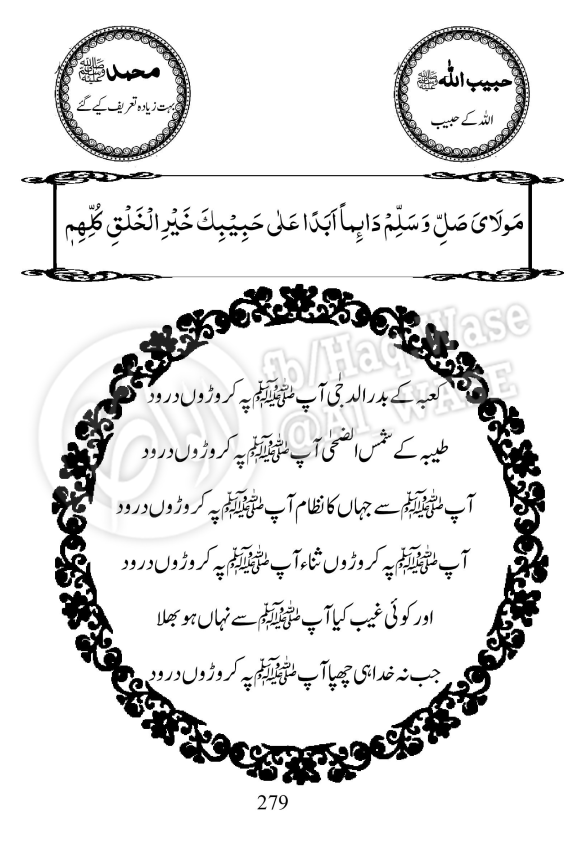 حبیب اللہ ﷺ
اللہ کے حبیب
محمد ﷺ
بہت زیادہ تعریف کیے گئے
مَولَایَ صَلِّ وَسَلِّمْ دَائِماً اَبَدًا عَلٰی حَبِیْبِكَ خَیْرِ الْخَلْقِ کُلِّهِمٖ
fb/Haq Wase
کعبہ کے بدر الدجٰی آپ ﷺ پہ کروڑوں درود
طیبہ کے شمس الضحٰی آپ ﷺ پہ کروڑوں درود
آپ ﷺ سے جہاں کا نظام آپ ﷺ پہ کروڑوں درود
آپ ﷺ پہ کروڑوں ثناء آپ ﷺ پہ کروڑوں درود
اور کوئی غیب کیا آپ ﷺ سے نہاں ہو بھلا
جب نہ خدا ہی چھپا آپ ﷺ پہ کروڑوں درود
279